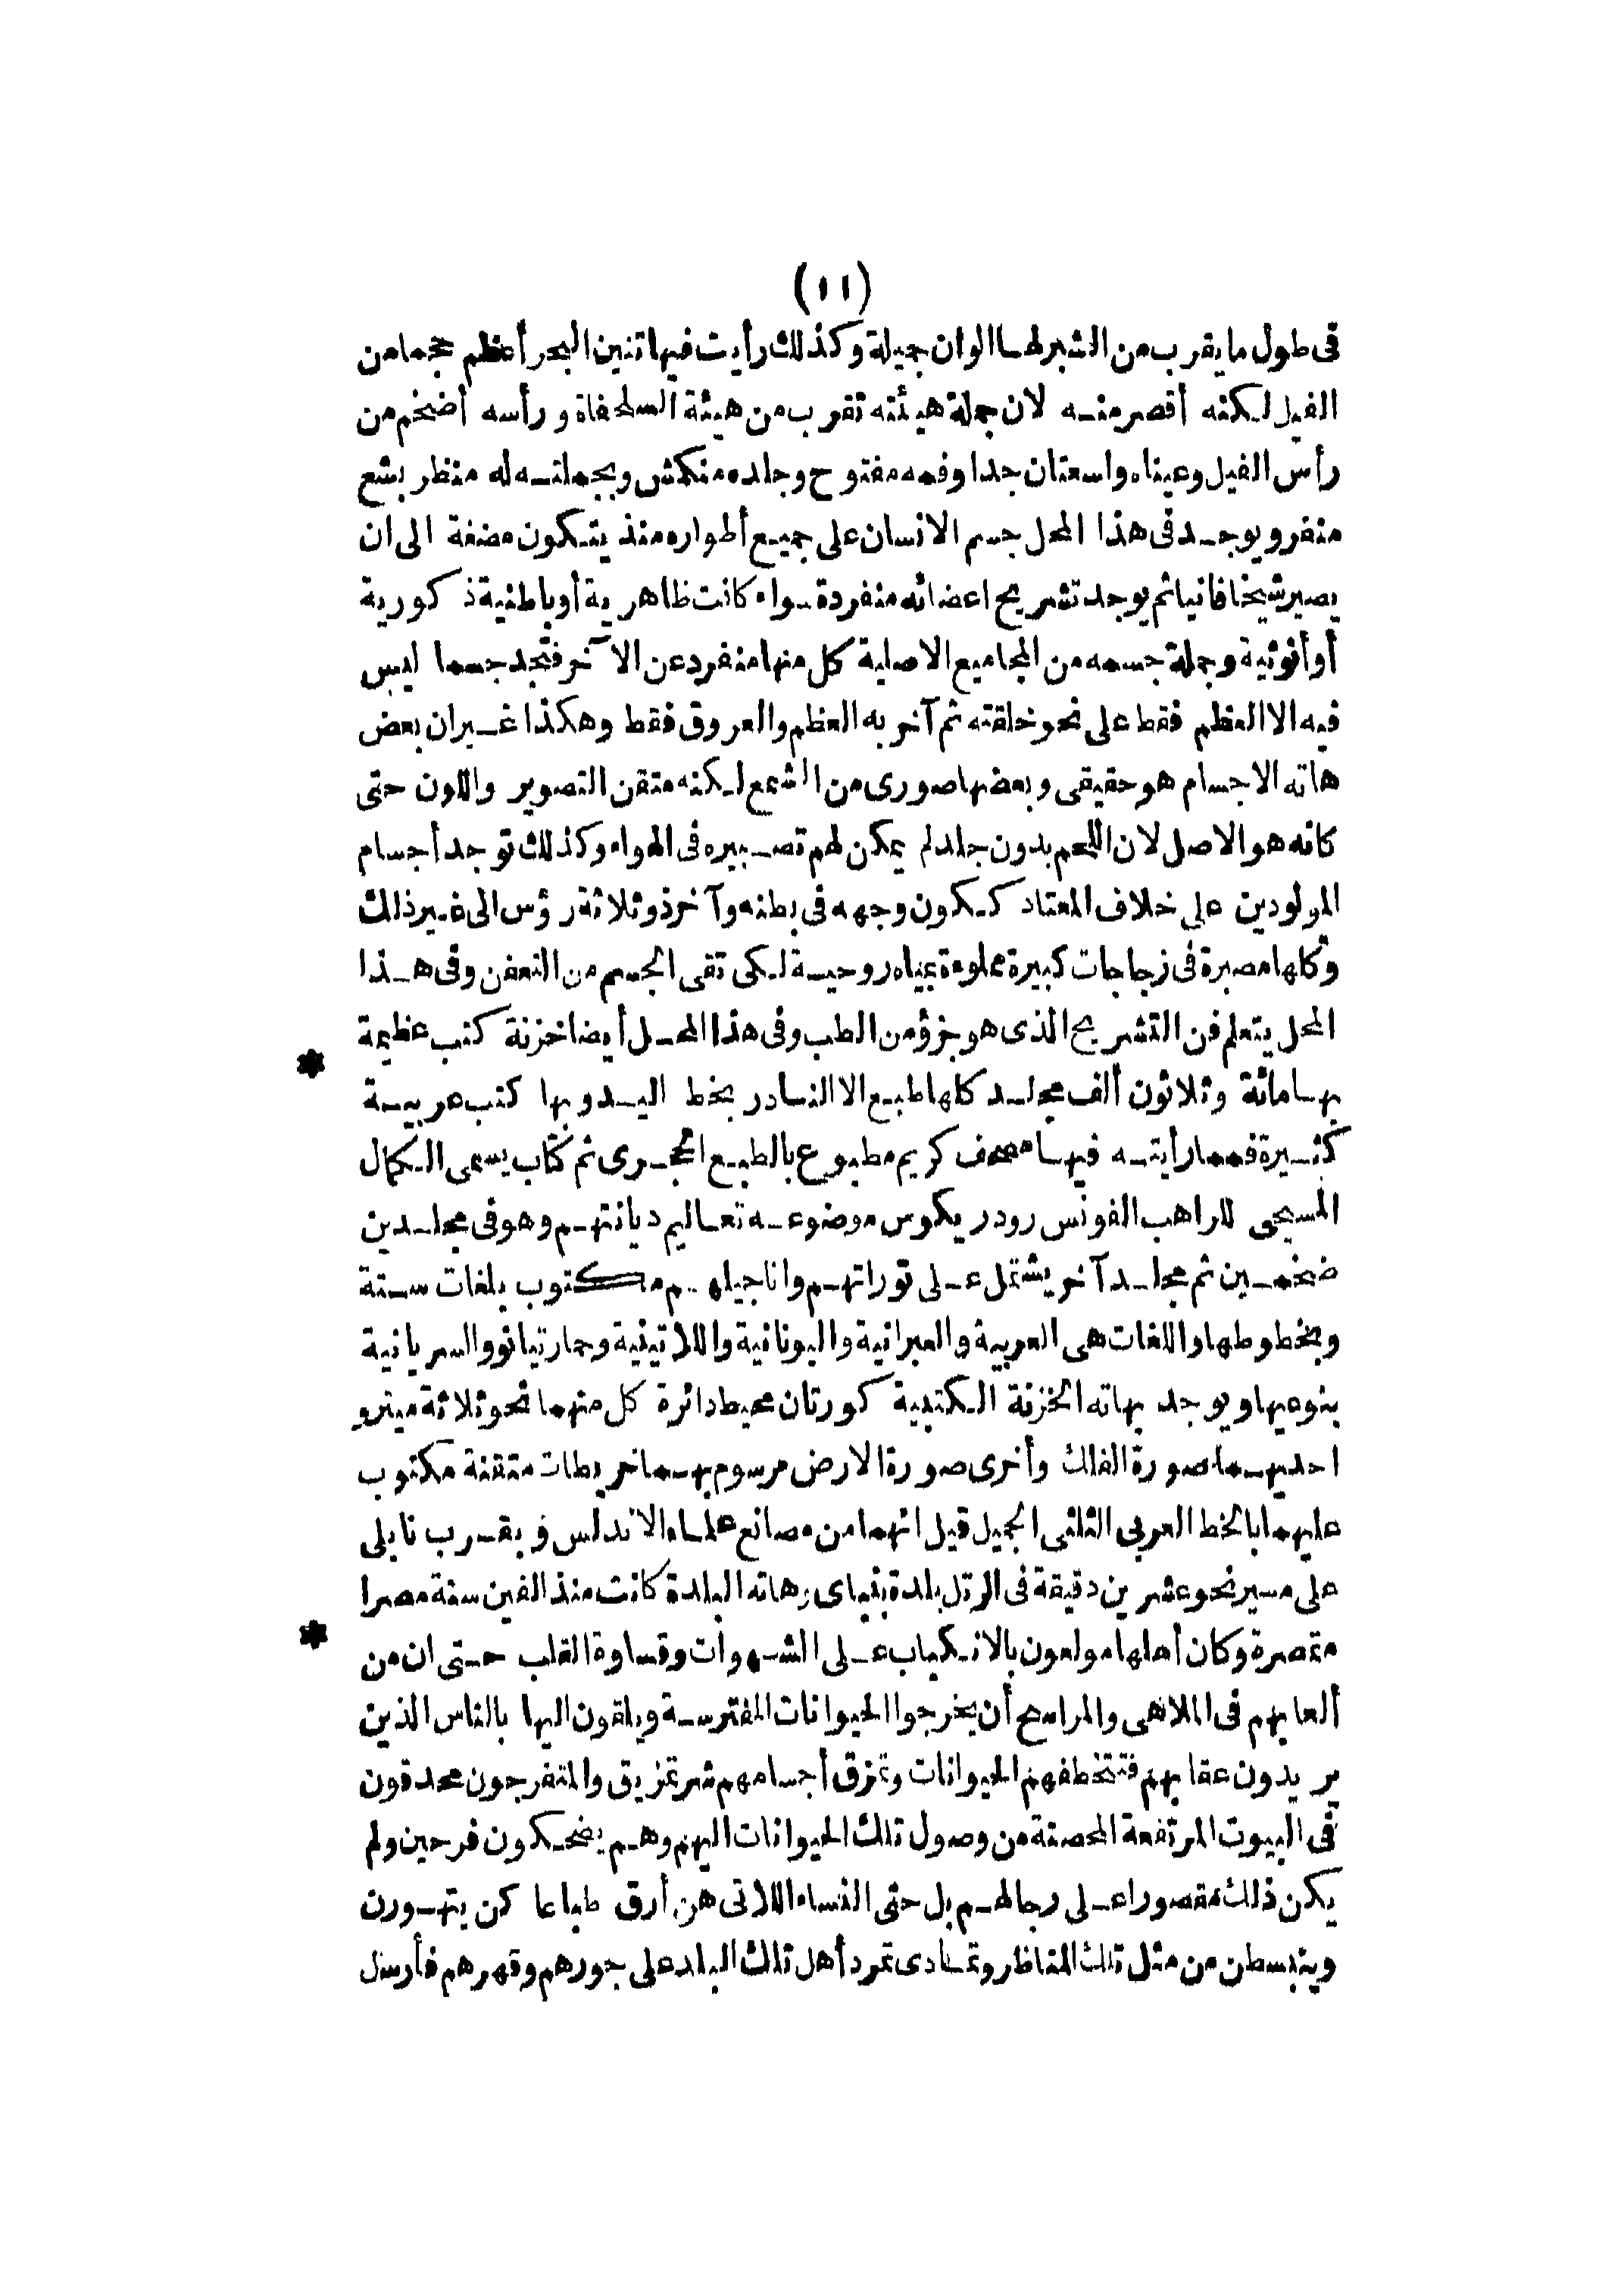 (١١)
فى طول ما يقرب من الشبر لها الوان جميلة وكذلك رأيت فيها تنين البحر أعظم حجما من
الفيل لكنه أقصر منه لان جملة هيئته تقرب من هيئة السلحفاة ورأسه أضخم من
رأس الفيل وعيناه واسعتان جدا وفمه مفتوح وجلده منكمش وبجملته له منظر بشع
منفر ويوجد فى هذا المحل جسم الانسان على جميع أطواره منذ يتكون مضغة الى ان
يصير شيخا فانيا ثم يوجد تشريح اعضائه منفردة سواء كانت ظاهرية أو باطنية ذكورية
أو أنوثية وجملة جسمه من المجاميع الاصلية كل منها منفرد عن الآخر فتجد جسما ليس
فيه الا العظم فقط على نحو خلقته ثم آخر به العظم والعروق فقط وهكذا غير ان بعض
هاته الاجسام هو حقيقى وبعضها صورى من الشمع لكنه متقن التصوير واللون حتى
كانه هو الاصل لان اللحم بدون جلد لم يمكن لهم تصبيره فى الهواء وكذلك توجد أجسام
المولودين على خلاف المعتاد ككون وجهه فى بطنه وآخر ذو ثلاثة رؤس الى غير ذلك
وكلها مصبرة فى زجاجات كبيرة مملوءة بمياه روحية لكى تقى الجسم من التعفن وفى هذا
المحل يتعلم فن التشريح الذى هو جزؤ من الطب وفى هذا المحل أيضا خزنة كتب عظيمة
*
بها مائة وثلاثون ألف مجلد كلها طبع الا النادر بخط اليد وبها كتب عربية
كثيرة فمما رأيته فيها مصحف كريم مطبوع بالطبع الحجرى ثم كتاب يسمى الكمال
المسيحى للراهب الفونس رودريكوس موضوعه تعاليم ديانتهم وهو فى مجلدين
ضخمين ثم مجلد آخر يشتمل على توراتهم واناجيلهم مكتوب بلغات ستة
وبخطوطها واللغات هى العربية والعبرانية واليونانية واللاتينية وجمارتيانو والسريانية
بنوعيها ويوجد بهاته الخزنة الكتبية كورتان محيط دائرة كل منهما نحو ثلاثة ميترو
احديهما صورة الفلك وأخرى صورة الارض مرسوم بهما خريطات متقنة مكتوب
عليهما بالخط العربى الثلثى الجميل قيل انهما من مصانع علماء الاندلس وبقرب نابلى
على مسير نحو عشرين دقيقة فى الرتل بلدة بنباى وهاته البلدة كانت منذ الفين سنة مصرا
*
متمصرة وكان أهلها مولعون بالانكباب على الشهوات وقساوة القلب حتى ان من
ألعابهم فى الملاهى والمراسح أن يخرجوا الحيوانات المفترسة ويلقون اليها بالناس الذين
يريدون عقابهم فتتخطفهم الحيوانات وتمزق أجسامهم شر تمزيق والمتفرجون محدقون
فى البيوت المرتفعة المحصنة من وصول تلك الحيوانات اليهم وهم يضحكون فرحين ولم
يكن ذلك مقصورا على رجالهم بل حتى النساء اللاتى هن أرق طباعا كن يتهورن
وينبسطن من مثل تلك المناظر وتمادى تمرد أهل تلك البلد على جورهم وقهرهم فأرسل